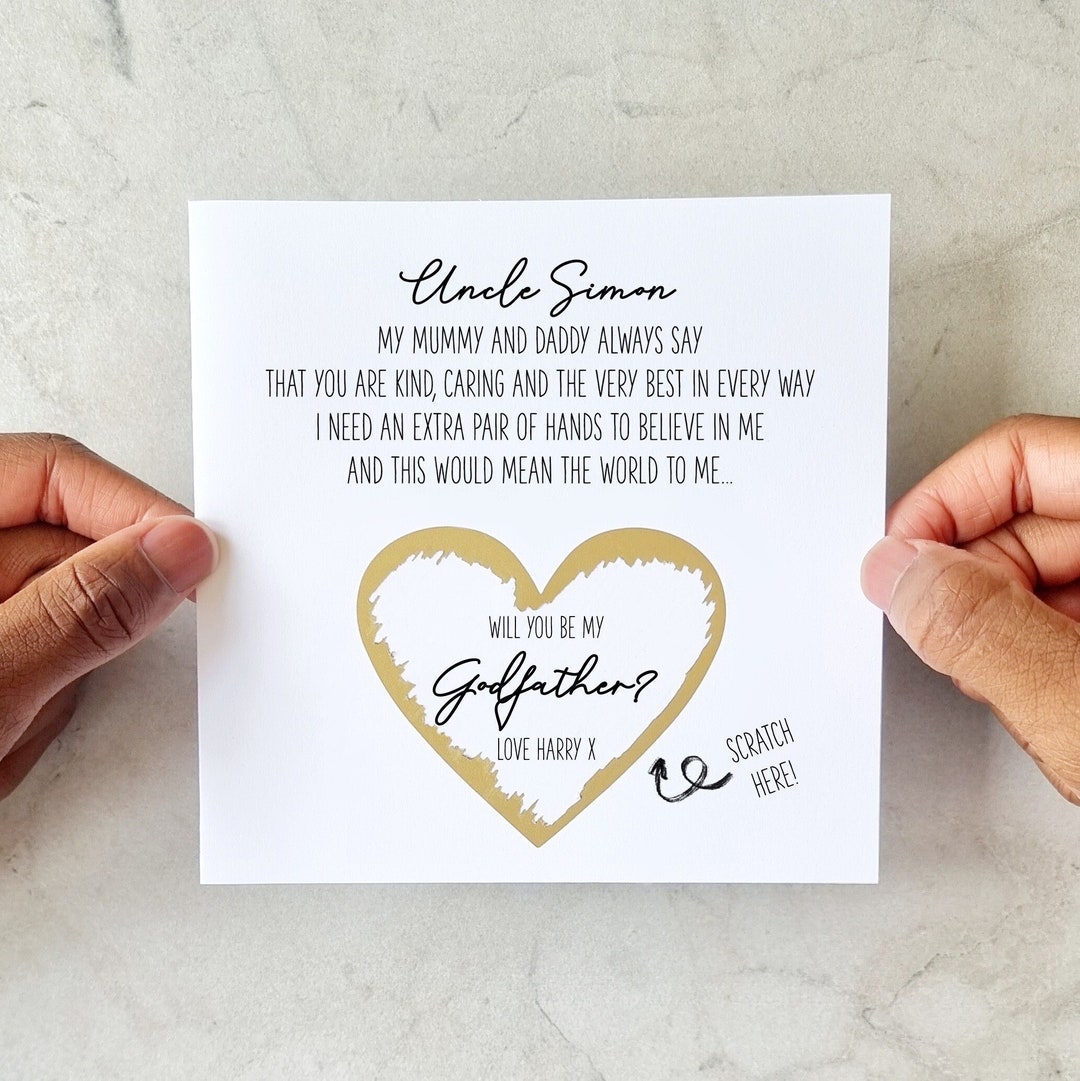 Uncle Simon
MY MUMMY AND DADDY ALWAYS SAY
THAT YOU ARE KIND, CARING AND THE VERY BEST IN EVERY WAY
I NEED AN EXTRA PAIR OF HANDS TO BELIEVE IN ME
AND THIS WOULD MEAN THE WORLD TO ME...
WILL YOU BE MY
Godfather?
LOVE HARRY X
SCRATCH
HERE!